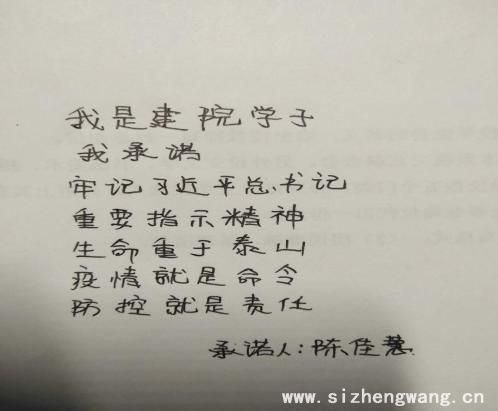 我是建院学子
我承诺
牢记习近平总书记
重要指示精神
生命重于泰山
疫情就是命令
防控就是责任
承诺人:陈佳慧
www.sizhengwang.cn